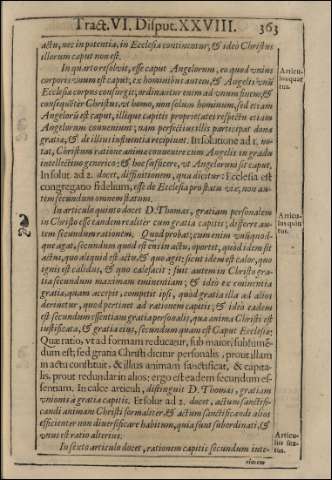 Tract. VI. Disput. XXVIII. 363
actu, nec in potentia, in Ecclesia continentur, & ideò Christus
illorum caput non est.
In quarto resoluit, esse caput Angelorum, eo quod vnius
corporis vnum est caput; ex hominibus autem, & Angelis vna
Ecclesiæ corpus consurgit; ordinantur enim ad vnum finem; &
consequenter Christus, vt homo, non solum hominum, sed etiam
Angelorũ est caput, illique capitis proprietates respectu etiam
Angelorum conueniunt; nam perfectius illis participat dona
gratiæ, & de illius influentia recipiunt. In solutione ad 1. no-
tat, Christum ratione animæ conuenire cum Angelis in gradu
intellectiuo generico; & hoc sufficere, vt Angelorum sit caput.
In solut. ad 2. docet, diffinitionem, qua dicitur: Ecclesia est
congregatio fidelium, esse de Ecclesia pro statu viæ, non au-
tem secundum omnem statum.
In articulo quinto docet D. Thomas, gratiam personalem
in Christo esse eandem realiter cum gratia capitis; differre au-
tem secundum rationem. Quod probat; cum enim vnũquod-
que agat, secundum quod est ens in actu, oportet, quod idem sit
actus, quo aliquid est actu, & quo agit; sicut idem est calor, quo
ignis est calidus, & quo calefacit: fuit autem in Christo gra-
tia secundum maximam eminentiam; & ideo ex eminentia
gratiæ, quam accepit, competit ipsi, quod gratia illa ad alios
deriuetur, quod pertinet ad rationem capitis; & ideo eadem
est secundum essentiam gratia personalis, qua anima Christi est
iustificata, & gratia eius, secundum quam est Caput Ecclesiæ:
Quæ ratio, vt ad formam reducatur, sub maiori subsumẽ-
dum est; sed gratia Christi dicitur personalis, prout illam
in actu constituit, & illius animam sanctificat, & capita-
lis, prout redundat in alios: ergo est eadem secundum es-
sentiam. In calce articuli, distinguit D. Thomas, gratiam
vnionis à gratia capitis. Et solut. ad 2. docet, actum sanctifi-
candi animam Christi formaliter & actum sanctificandi alios
efficienter non diuersificare habitum, quia sunt subordinati, &
vnus est ratio alterius.
In sexto articulo docet, rationem capitis secundum inte-
riorem
Articu-
lus quar
tus.
Articu-
lus quin
tus.
Articu-
lus sex-
tus.